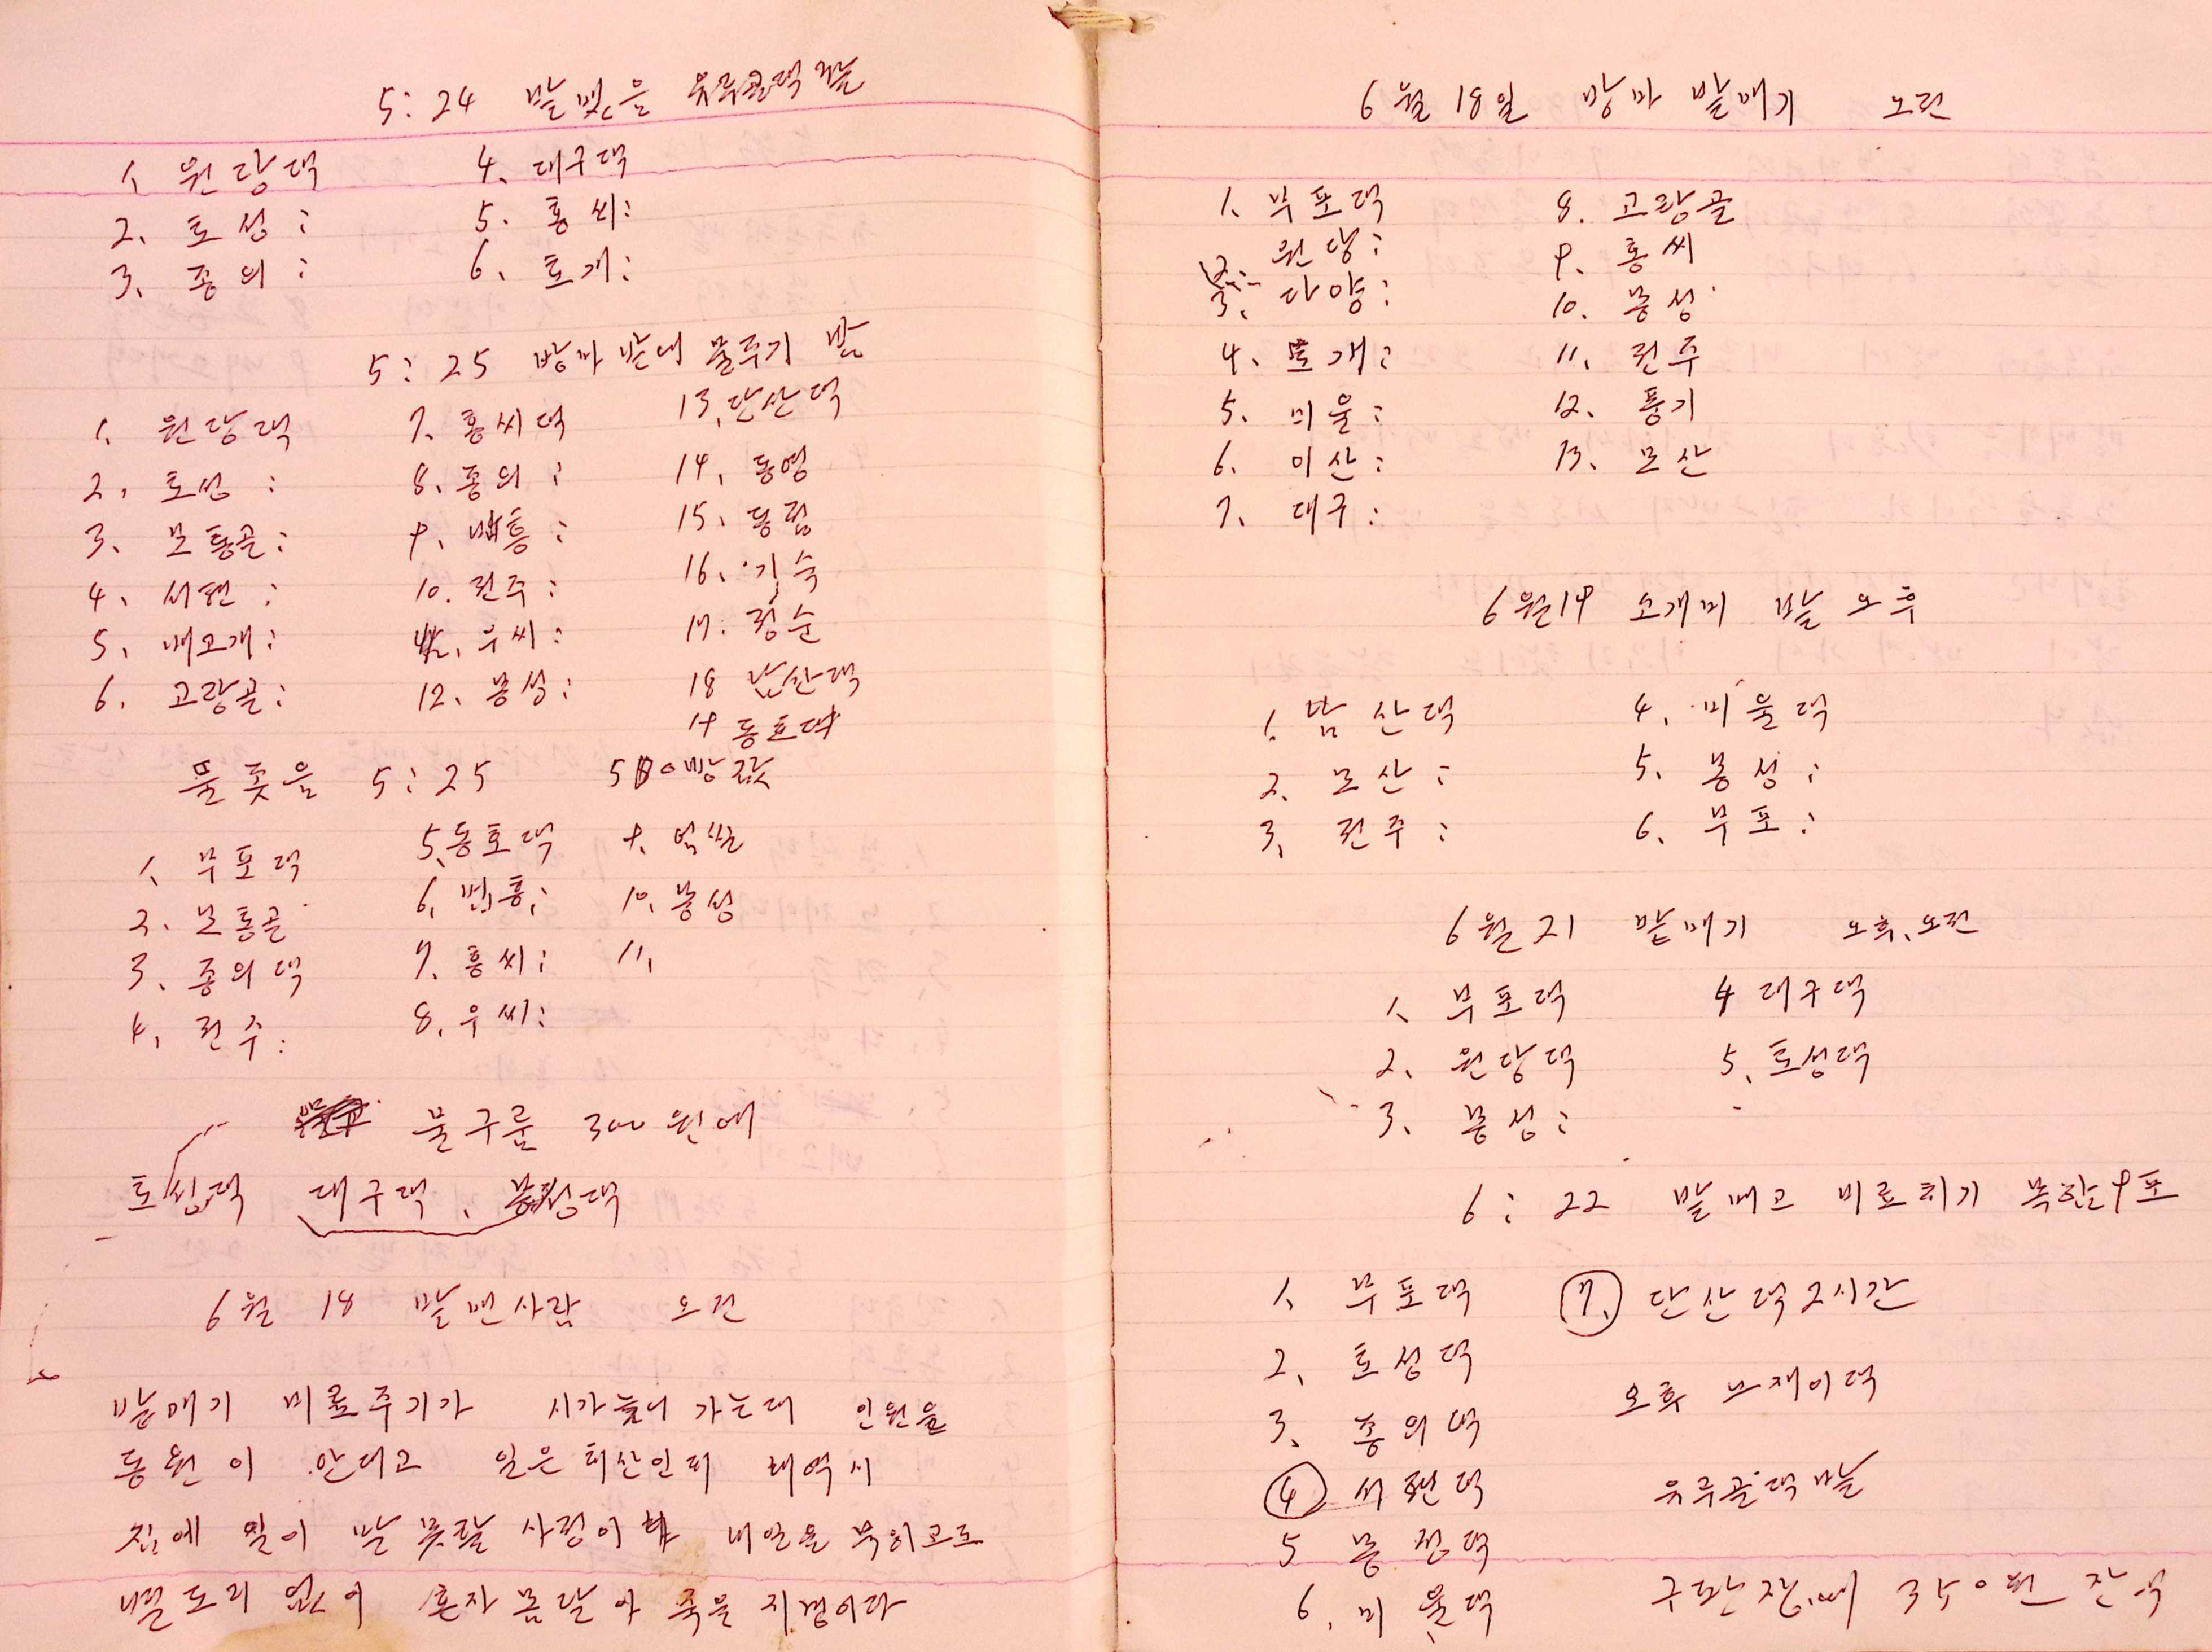 5:24 밭맷음 유루골댁 밭
1. 원당댁 4. 대구댁
2. 토성: 5. 홍씨:
3. 종의: 6. 토개:
5:25 방마 밭에 물주기 밤
1. 원당댁 7. 홍씨댁 13. 단산댁
2. 토성: 8. 종의: 14. 동영
3. 모통골: 9. 백흥: 15. 동림
4. 서편: 10. 전주: 16. 기숙
5. 배고개: 우씨: 17. 정순
6. 고랑골: 12. 봉성: 18 남산댁
19 동호댁
물풋음 5:25
1. 부포댁 5. 동호댁 9.
2. 모통골 6. 흥: 10. 봉성
3. 종의댁 7. 홍씨: 11.
4. 전주: 8. 우씨:
물구룸 300원에
토성댁 대구댁, 봉성댁
6월 18 밭맨사람 오전
밭매기 비료주기가 시가 늦어 가는대 인원을
동원이 안대고 일은 태산인대
집에 일이 말 못할 사정이 내일을
별 도리 없이 혼자 몸달아 죽을 지경이다
6월 18일 방마 밭매기 오전
1. 부포댁 8. 고랑골
2. 원당: 9. 홍씨
3. 다양: 10. 봉성
4. 토개: 11. 전주
5. 미울: 12. 풍기
6. 이산: 13. 모산
7. 대구:
6월19 소개미 밭 오후
1. 남산댁 4. 미울댁
2. 모산: 5. 봉성:
3. 전주: 6. 부포:
6월 21 밭매기 오후, 오전
1. 부포댁 4 대구댁
2. 원당댁 5. 토성댁
3. 봉성:
6:22 밭매고 비료치기 복합9포
1. 부포댁 7. 단산댁 2시간
2. 토성댁 오후 댁
3. 종의댁
4 서편댁 유루골댁 밭
5 봉성댁
6. 미울댁 구판장에 350원